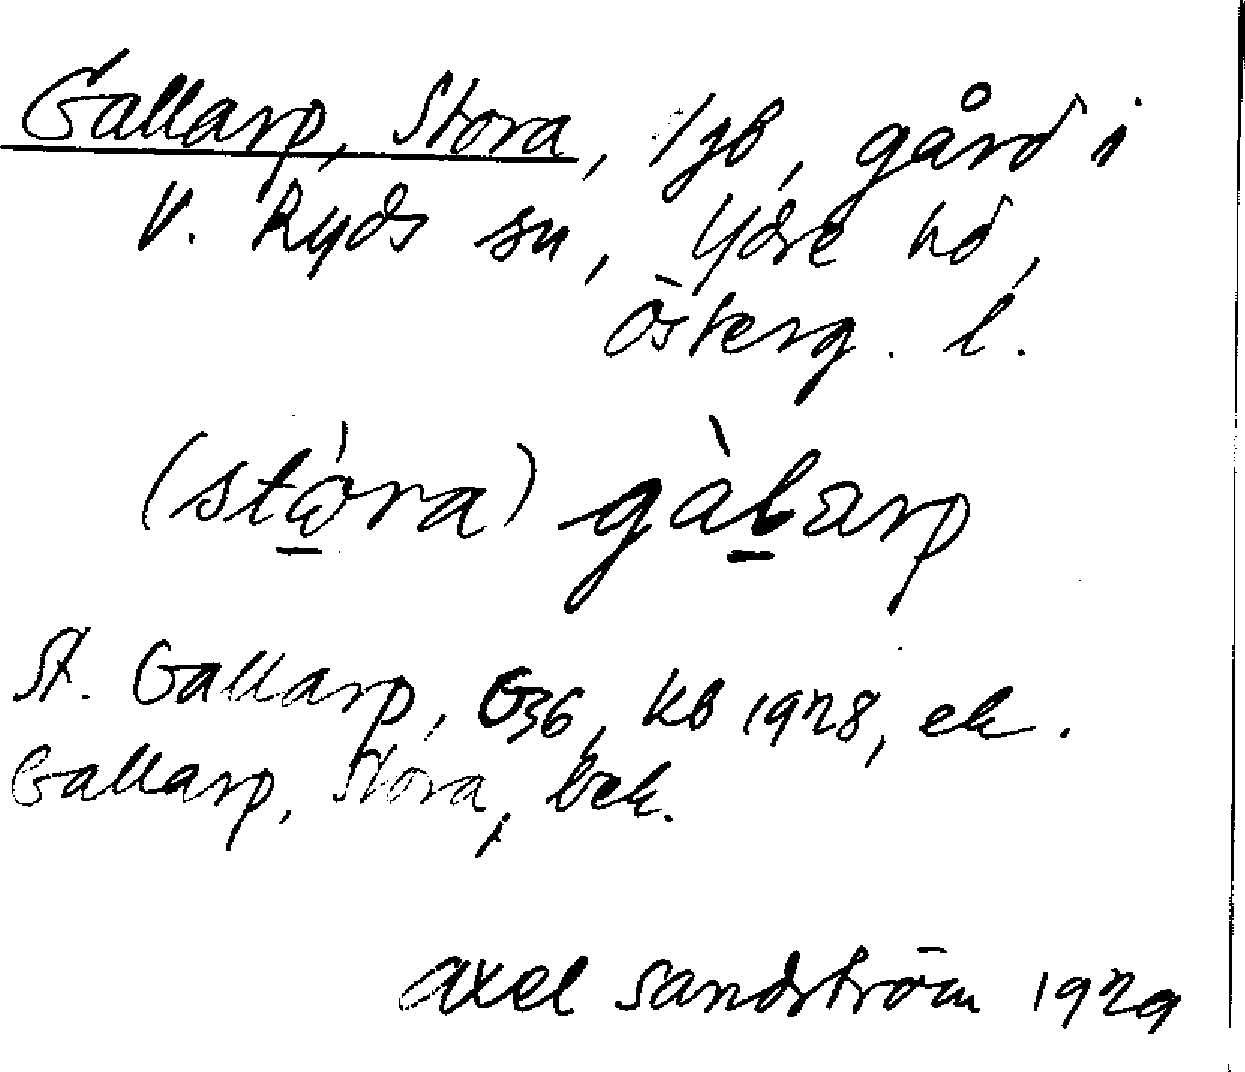 Gallarp, Stora, jb, gård i
V. Ryds sn, Ydre hd,
Österg. l.
(stóra) gàlarp
St. Gallarp, G36, KB 1928, ek.
Gallarp, Stora, bek.
Axel Sandström 1929